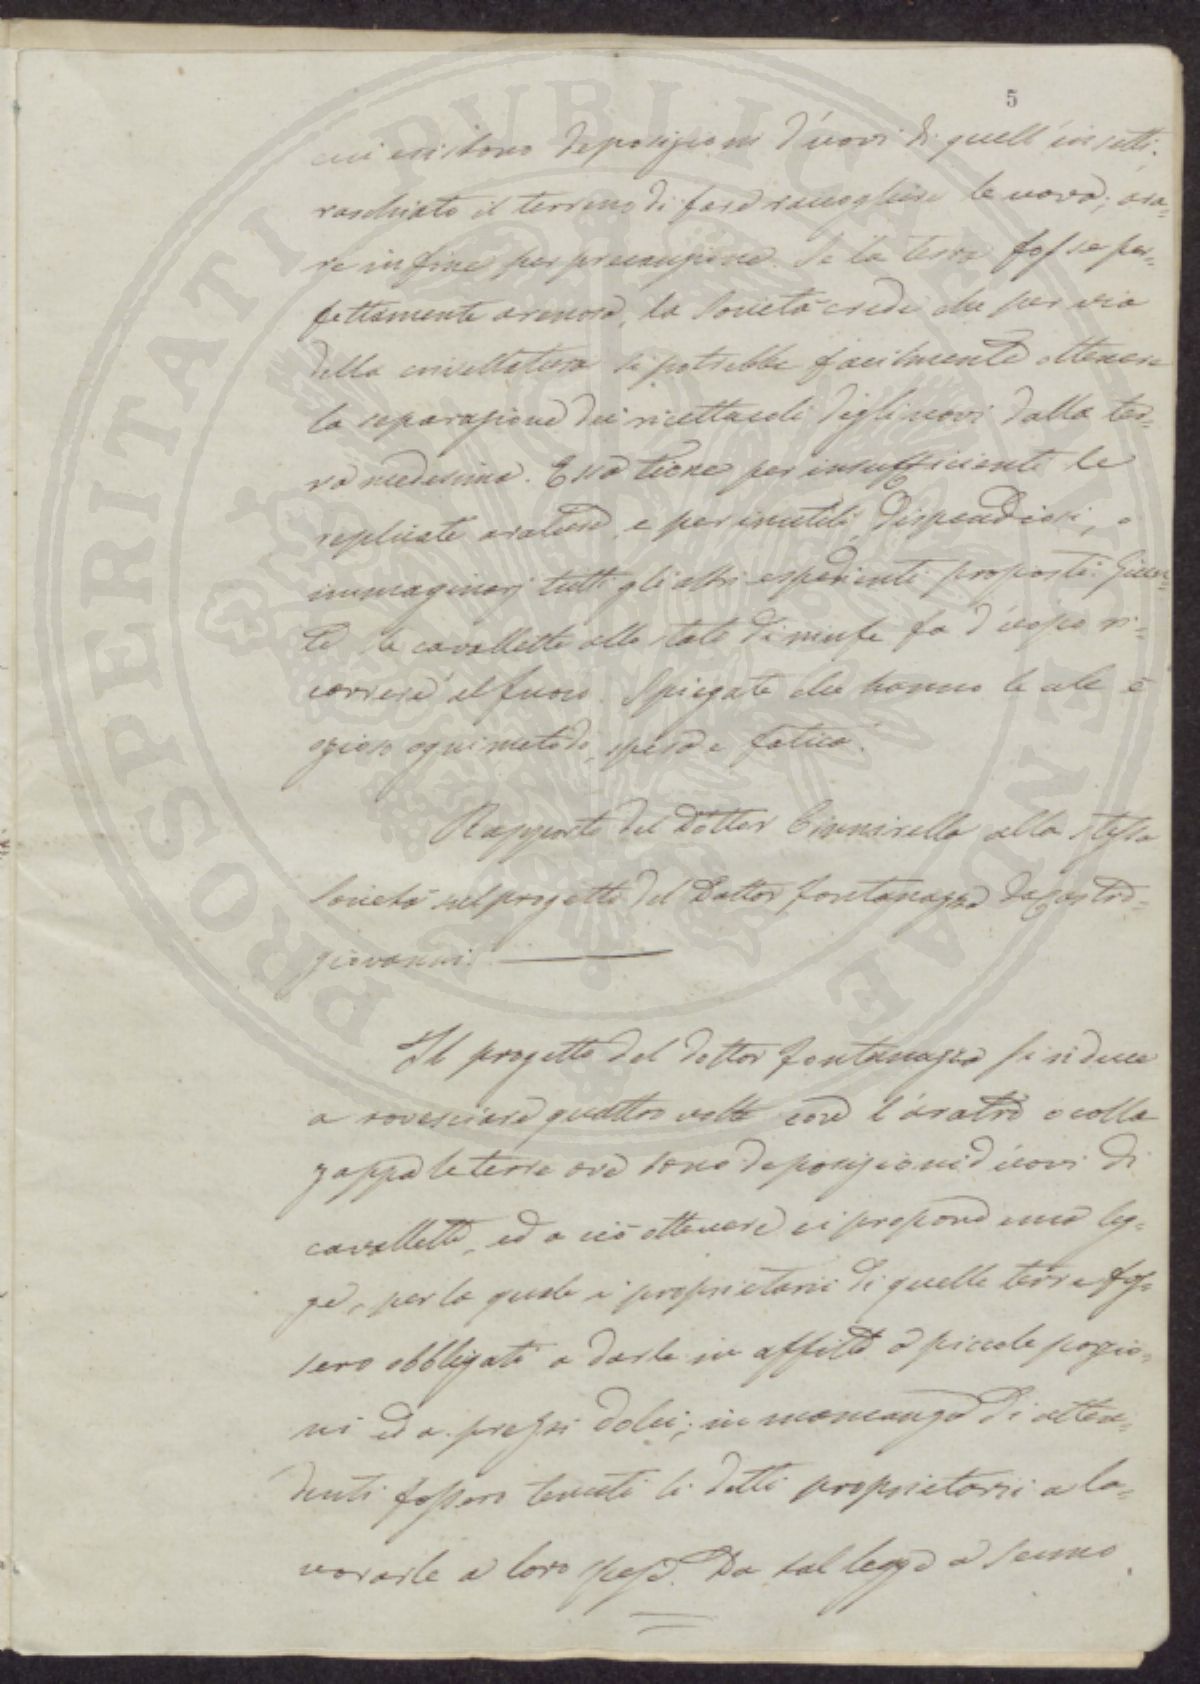 5
cui esistono deposizioni d'uovi di quell'insetti.
raschiato il terreno di fare raccogliere le uova; ara-
re in fine per precauzione. Se la terra fosse per-
fettamente arenosa, la Società crede che per via
della crivellatura si potrebbe facilmente ottenere
la separazione dei ricettacoli degli uovi dalla ter-
ra medesima. Essa tiene per insufficienti le
replicate arature, e per inutili, dispendiosi, o
immaginarj tutti gli altri espedienti proposti. Giun-
te le cavallette allo stato di ninfe fa d'uopo ri-
correre al fuoco. Spiegate che hanno le ale è
ozioso ogni metodo, spesa e fatica.
Rapporto del Dottor alla stessa
Società sul progetto del Dottor Fontanazza da Castro-
giovanni.
Il progetto del dottor Fontanazza si riduce
a rovesciare quattro volte con l'aratro o colla
zappa le terre ove sono deposizioni d'uovi di
cavallette, ed a ciò ottenere ei propone una leg-
ge, per la quale i proprietarii di quelle terre fos-
sero obbligati a darle in affitto a piccole porzio-
ni ed a prezzi dolci; in mancanza di atten-
denti fossero tenuti li detti proprietarii a la-
vorarle a loro spese. Da tal legge a senno
PROSPERITATI PUBLICAE AUGENDAE